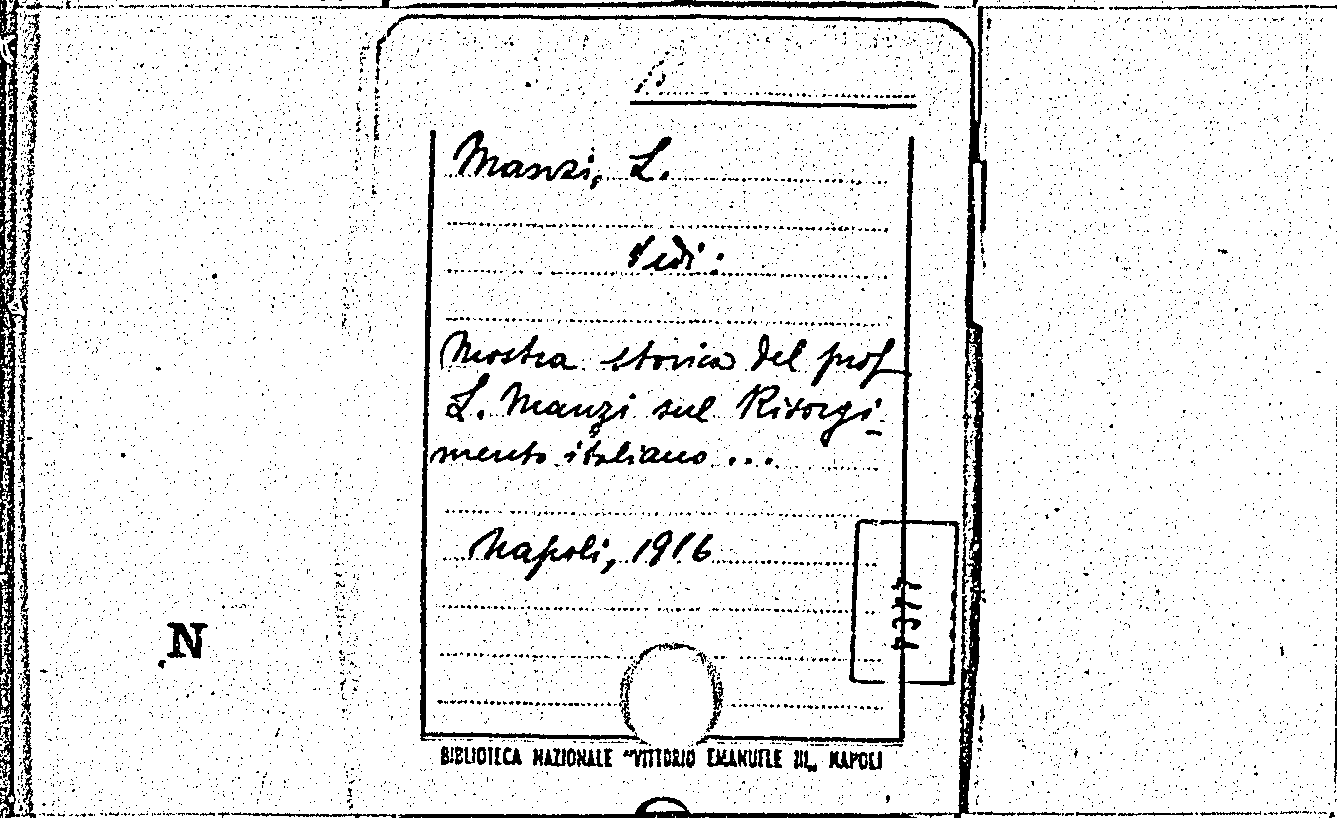 Manzi, L.
Vedi:
Mostra storica del prof
L. Manzi sul Risorgi-
mento italiano ...
Napoli, 1916
N
BIBLIOTECA NAZIONALE "VITTORIO EMANUELE III„ NAPOLI